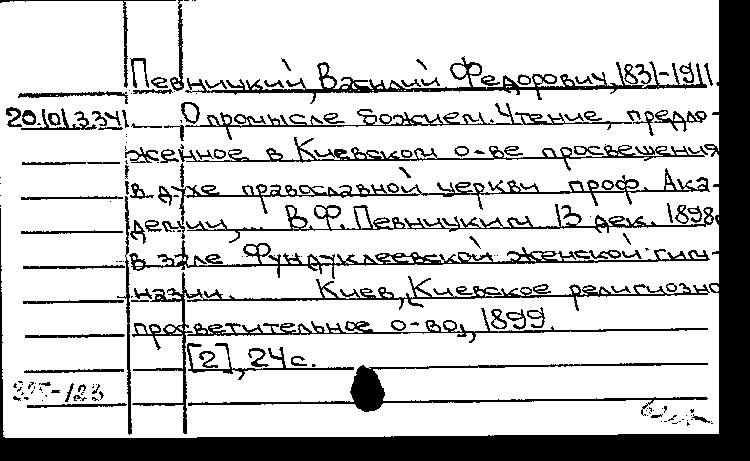 Певницкий, Василий Федорович, 1831-1911.
20.101.3.341. О промысле божием. Чтение, предло-
женное в Киевском о-ве просвещения
в духе православной церкви проф. Ака-
демии, ... В.Ф. Певницким 13 дек. 1898г
в зале Фундуклеевской женской гим-
назии. Киев, Киевское религиозно
просветительное о-во, 1899.
[2], 24 с.